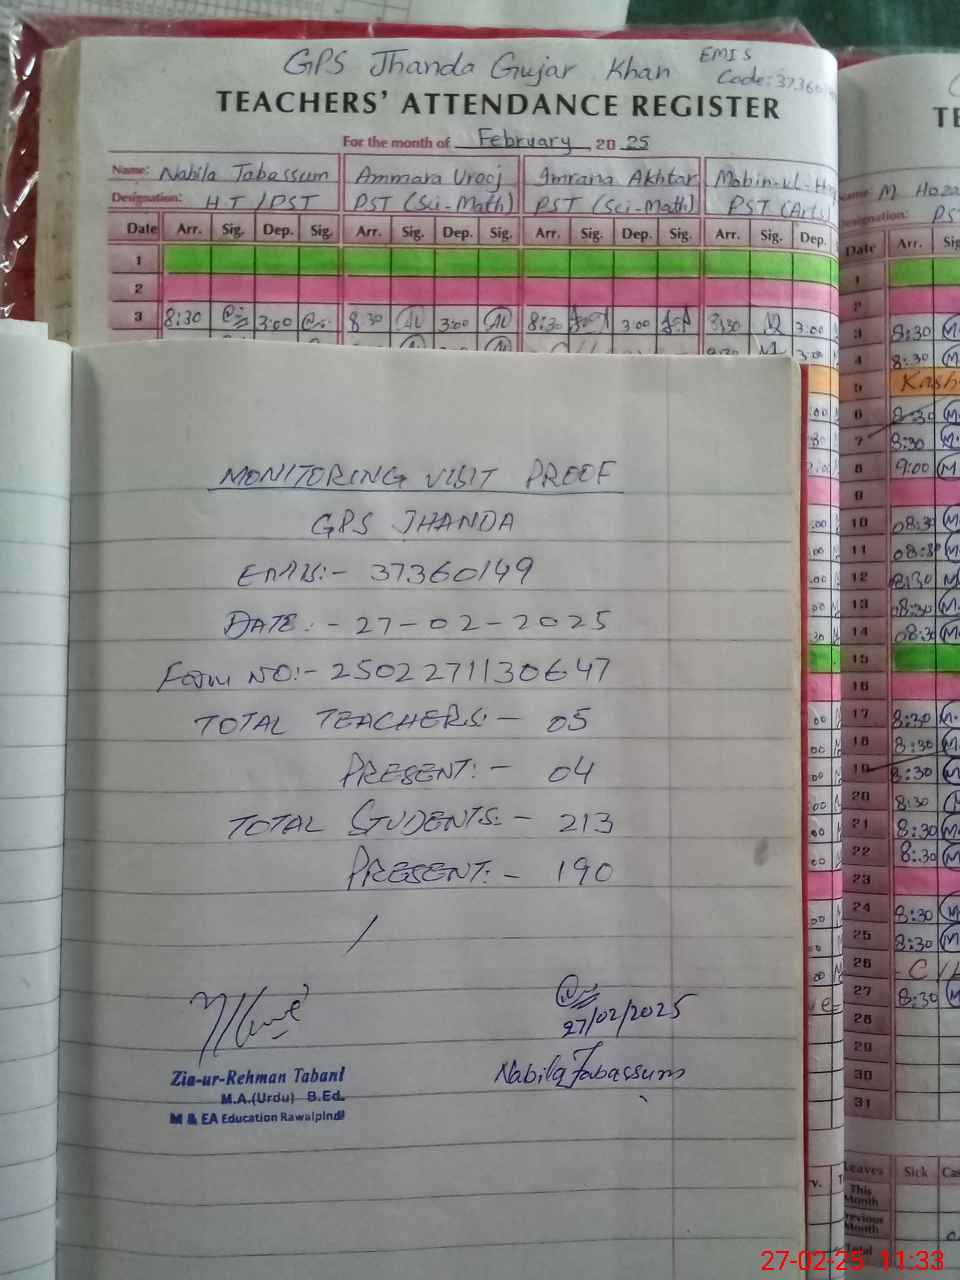 GPS Jhanda Gujar Khan
EMIS
Code: 37360
TEACHERS' ATTENDANCE REGISTER
For the month of February, 20 25
Name: Nabila Tabassum Ammara Urooj Imrana Akhtar Mobin-ul-
Designation: H.T / PST PST (Sci-Math) PST (Sci-Math) PST (Arts)
Date Arr. Sig. Dep. Sig. Arr. Sig. Dep. Sig. Arr. Sig. Dep. Sig. Arr. Sig. Dep.
1
2
3 8:30 3:00 8:30 3:00 8:30 3:00 8:30 3:00
MONITORING VISIT PROOF
GPS JHANDA
EMIS:- 37360149
DATE:- 27-02-2025
Form NO:- 2502271130647
TOTAL TEACHERS:- 05
PRESENT:- 04
TOTAL STUDENTS:- 213
PRESENT:- 190
27/02/2025
Nabila Tabassum
Zia-ur-Rehman Tabani
M.A.(Urdu) B.Ed.
M & EA Education Rawalpindi
TE
Name: M
Designation: PS
Date Arr. Sig
1
2
3 8:30
4 8:30
5 Kash
6 8:30
7 8:30
8 9:00
9
10 08:30
11 08:30
12 8:30
13 08:30
14 08:30
15
16
17 8:30
18 8:30
19 8:30
20 8:30
21 8:30
22 8:30
23
24 8:30
25 8:30
26 C/
27 8:30
28
29
30
31
Leaves Sick Cas
This
Month
Previous
Month
Total
27-02-25 11:33